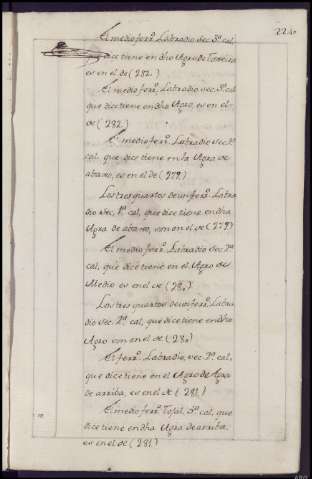 224
El medio ferr.º Labradio sec. 3.ª cal,
que dice tiene en dho Agro de
es en el de (282.)
El medio ferr.º Labradio sec. 3.ª cal
que dice tiene en dho Agro, es en el
de (282.)
El medio ferr.º Labradio sec. 1.ª
cal, que dice tiene en la Agra de
abaxo, es en el de (279.)
Los tres quartos de un ferr.º Labra
dio sec. 1.ª cal, que dice tiene en dha
Agra de abaxo, son en el de (279)
El medio ferr.º Labradio sec. 2.ª
cal, que dice tiene en el Agro de
Medio es en el de (280)
Los tres quartos de un ferr.º Labra
dio sec. 2.ª cal, que dice tiene en dho
Agro son en el de (280)
El ferr.º Labradio, sec. 3.ª cal,
que dice tiene en el Agro de Agra
de arriba, es en el de (281)
El medio ferr.º Tojal, 3.ª cal, que
dice tiene en dha Agra de arriba,
es en el de (281.)